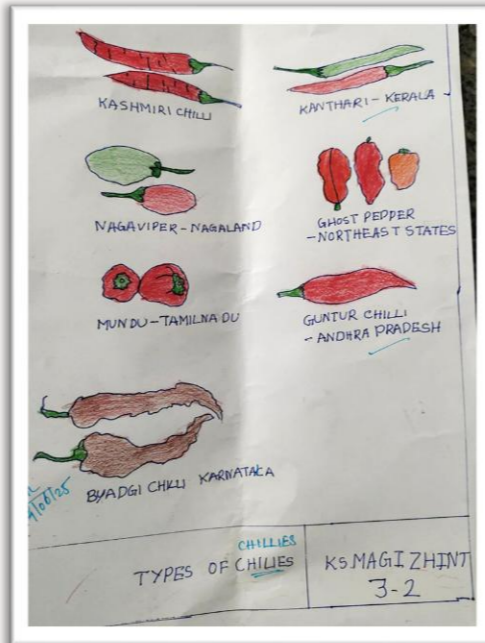 KASHMIRI CHILLI
KANTHARI - KERALA
NAGAVIPER - NAGALAND
GHOST PEPPER
- NORTHEAST STATES
MUNDU - TAMILNADU
GUNTUR CHILLI
- ANDHRA PRADESH
BYADGI CHILLI KARNATAKA
/06/25
CHILLIES
TYPES OF CHILIES
KS MAGIZHINT
3-2